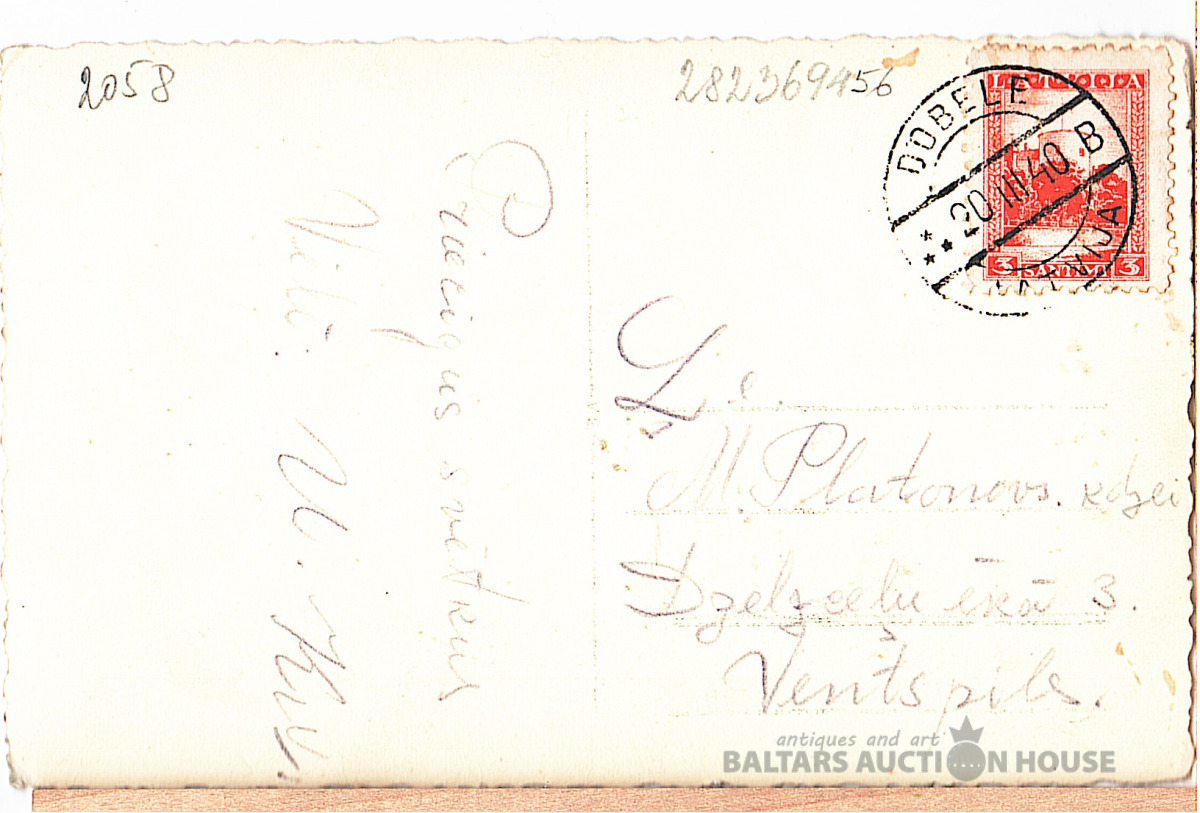 2058
282369456
LATVIJA
3 SANTIMI 3
DOBELE
20 III 40 B
LATVIJA
Priecīgus svētkus
Vēlī: U.
L. c.
M. Platonovs. kdzei
Dzelzceļu ēkā 3.
Ventspils.
antiques and art
BALTARS AUCTION HOUSE